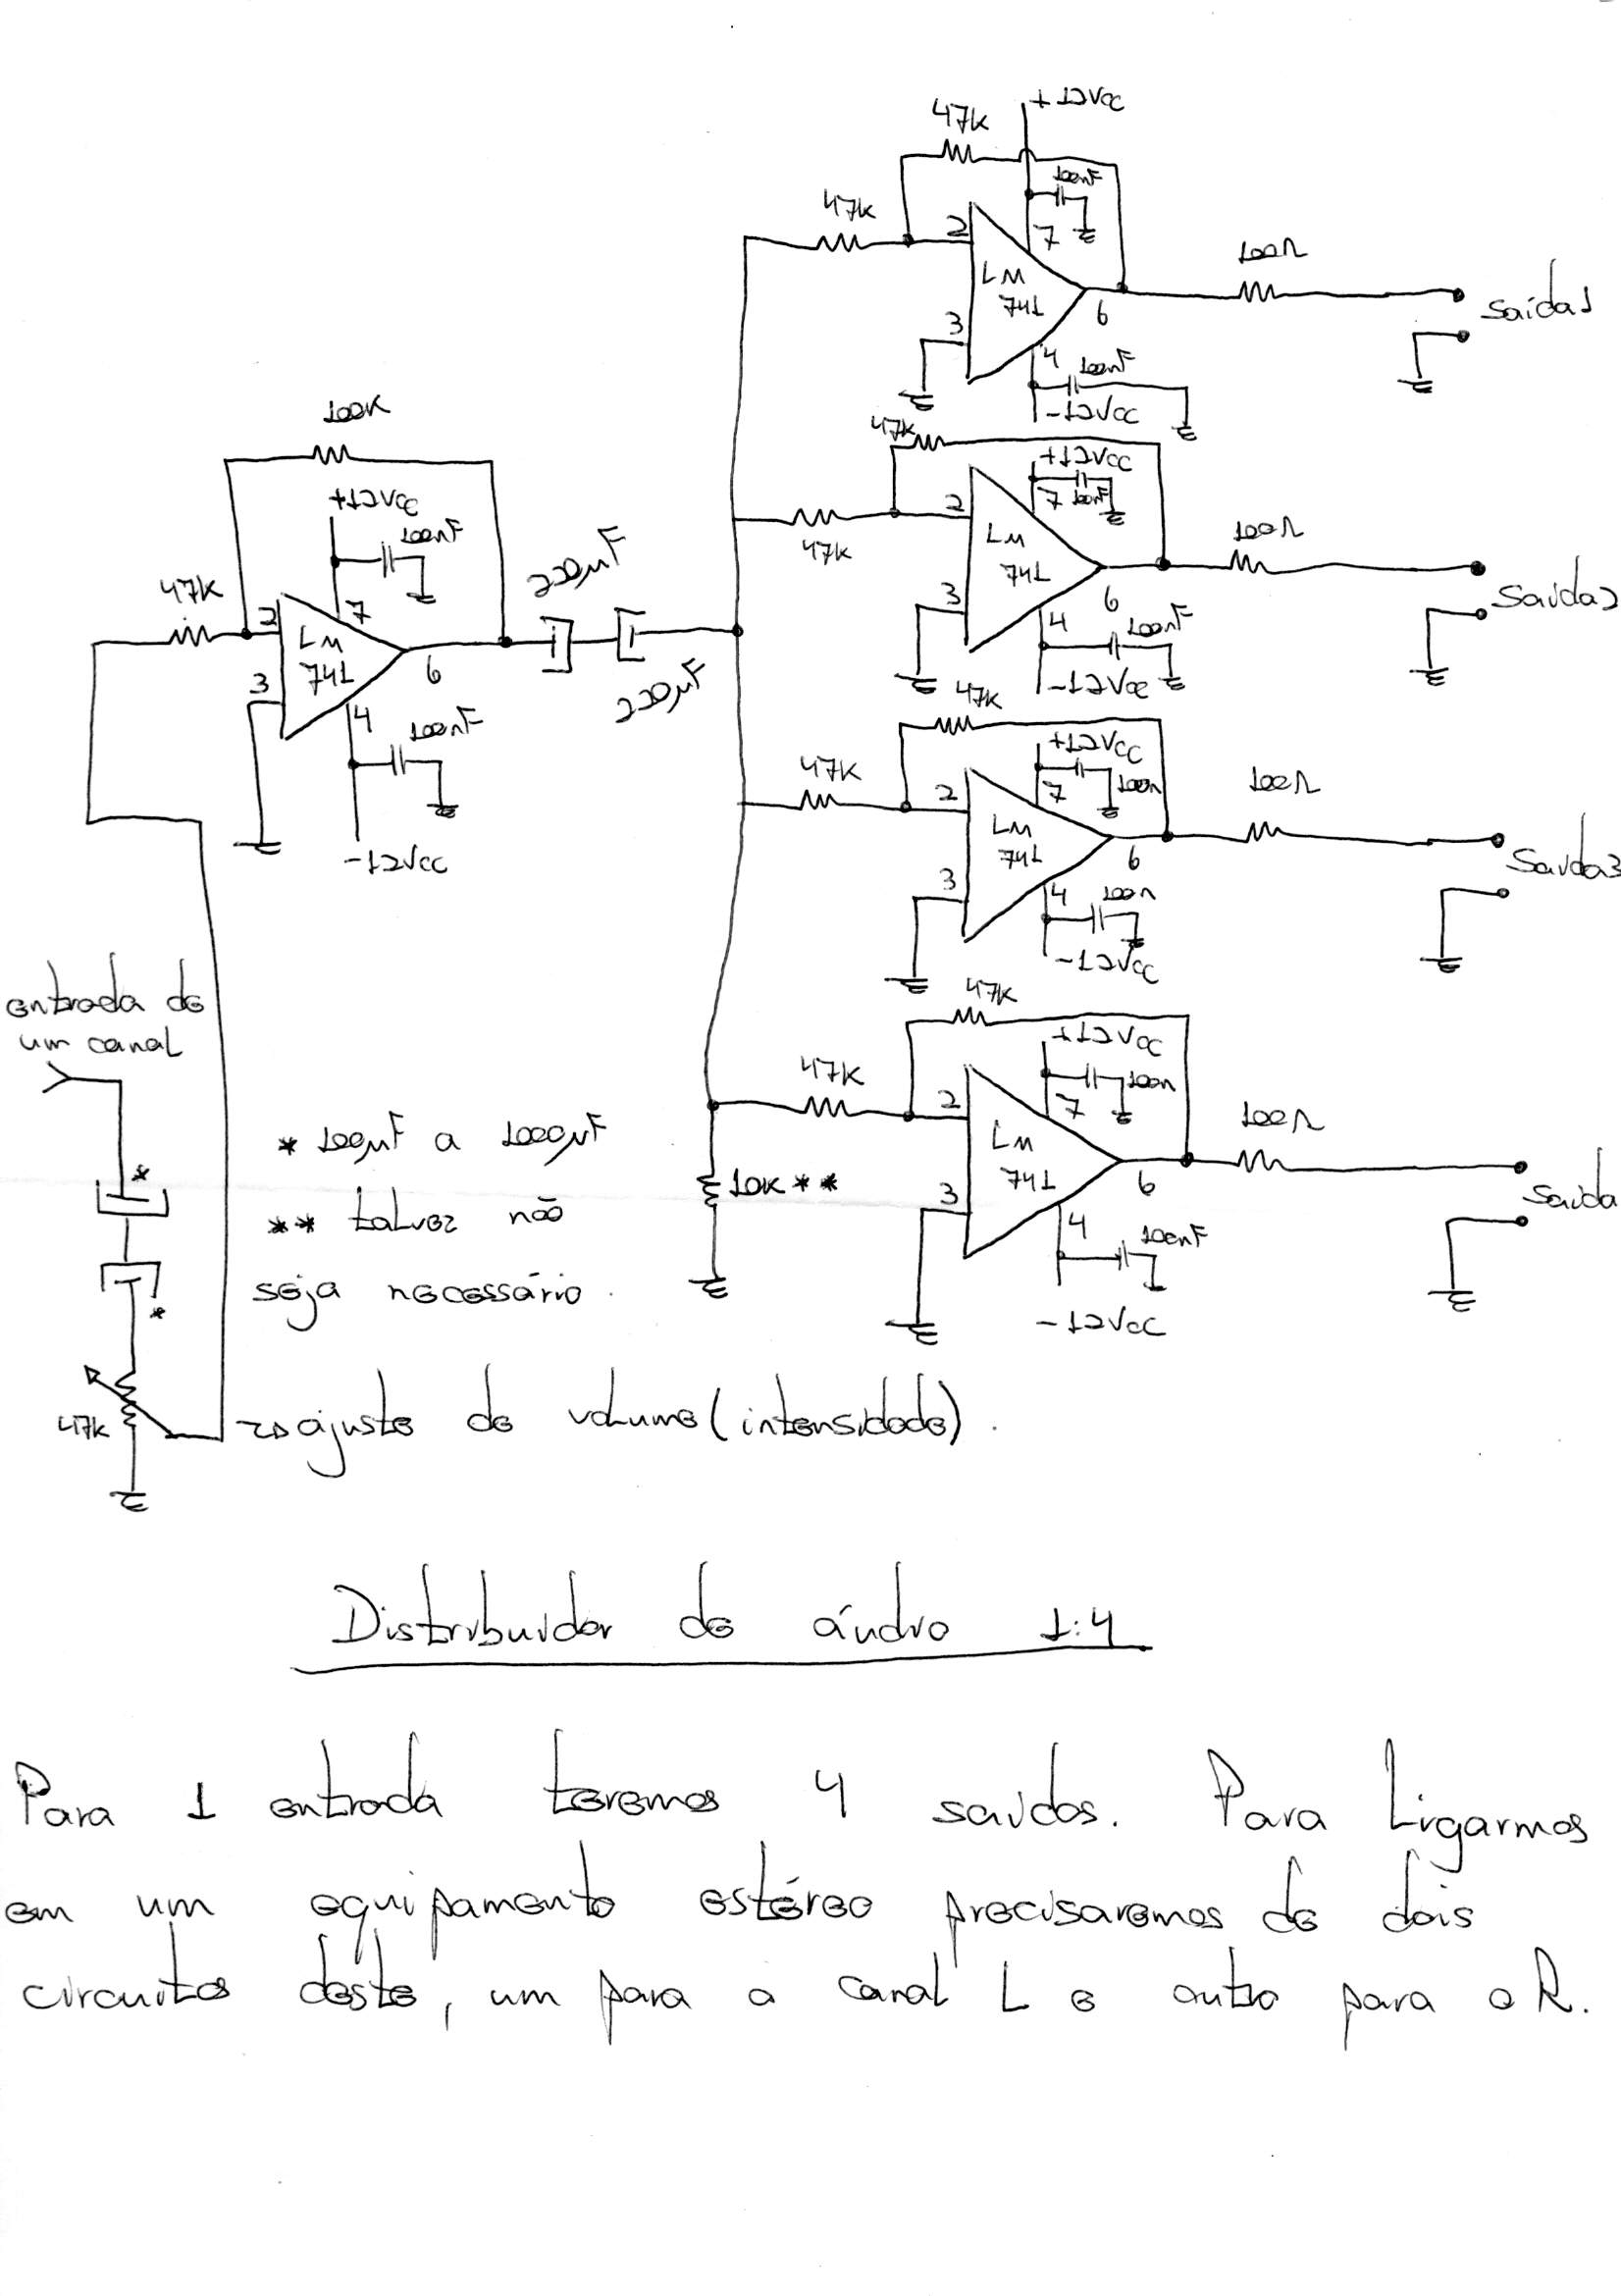 +12Vcc
47K
100nF
47K
2
7
LM
741
3
6
4
100nF
-12Vcc
100Ω
Saída1
47K
+12Vcc
100nF
47K
2
7
LM
741
3
6
4
100nF
-12Vcc
100Ω
Saída2
100K
+12Vcc
100nF
47K
2
7
LM
741
3
6
4
100nF
-12Vcc
220µF
220µF
47K
+12Vcc
100n
47K
2
7
LM
741
3
6
4
100n
-12Vcc
100Ω
Saída3
47K
+12Vcc
100n
47K
2
7
LM
741
3
6
4
100nF
-12Vcc
100Ω
Saída
10K **
entrada de
um canal
*
*
47K
* 100µF a 1000µF
** talvez não
seja necessário.
ajuste de volume (intensidade).
Distribuidor de áudio 1:4
Para 1 entrada teremos 4 saídas. Para Ligarmos
em um equipamento estéreo precisaremos de dois
circuitos deste, um para o canal L e outro para o R.